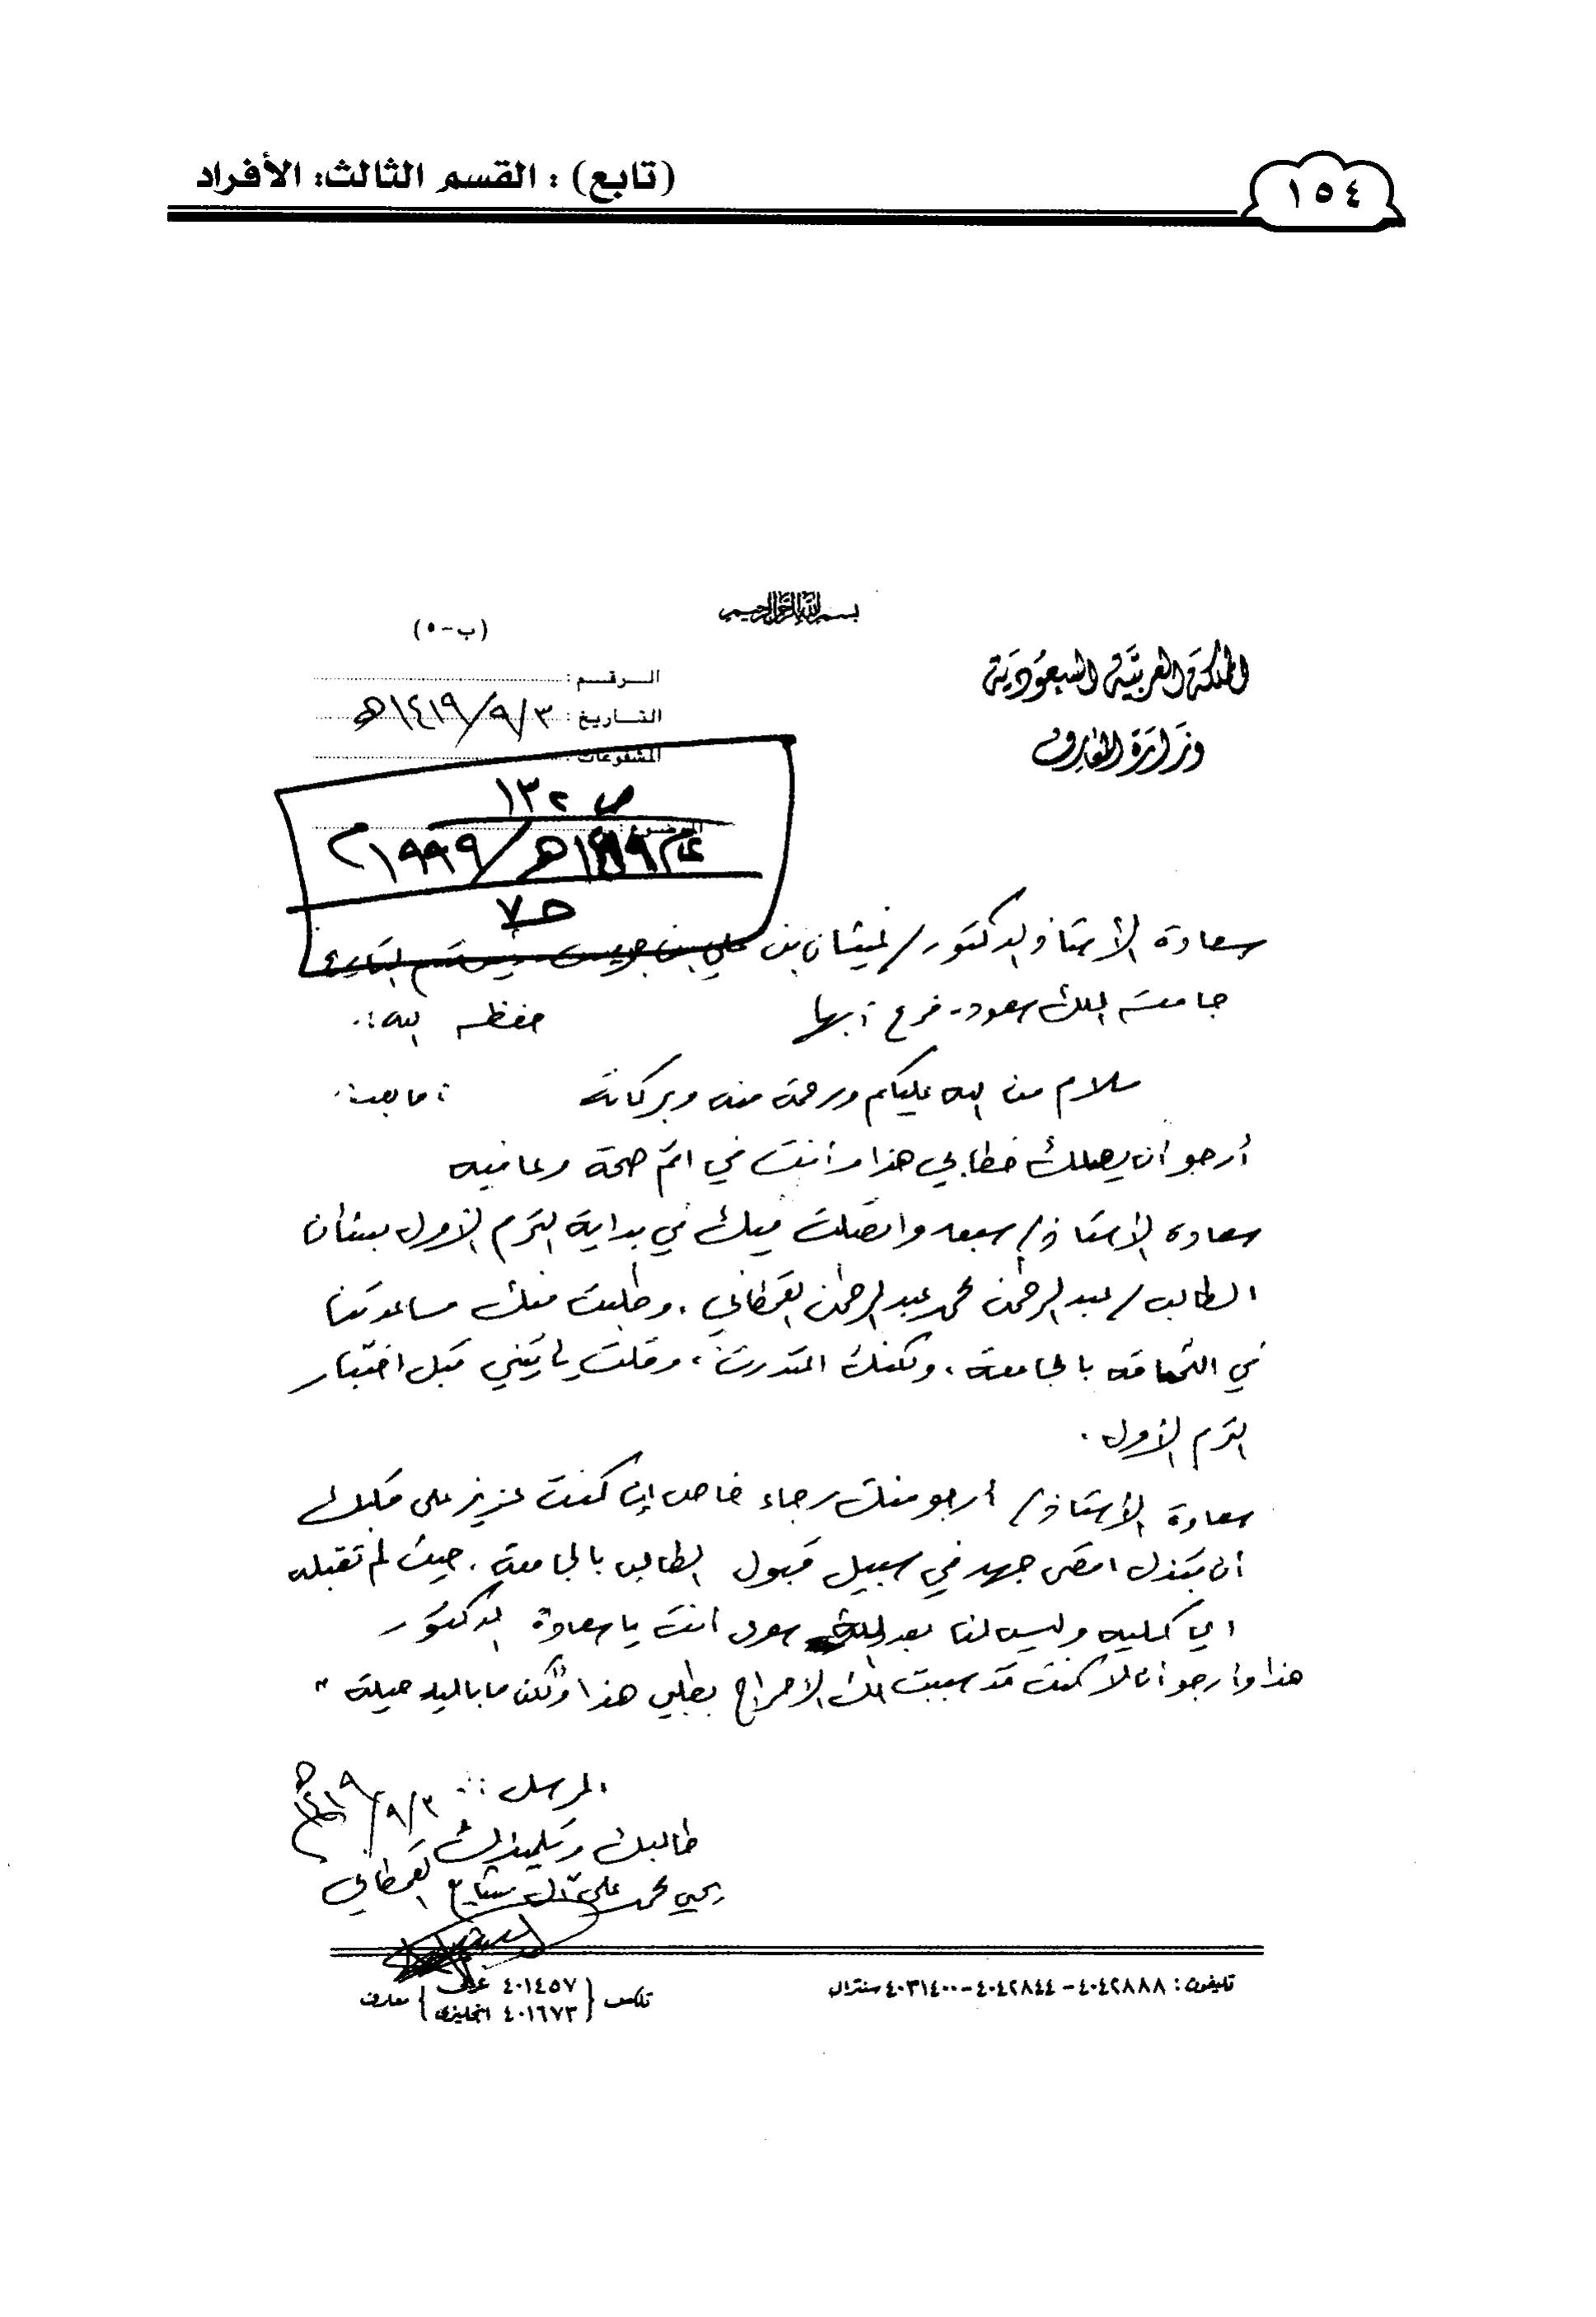 ١٥٤
(تابع) : القسم الثالث: الأفراد
بسم الله الرحمن الرحيم
(ب-٥)
المملكة العربية السعودية
وزارة المعارف
الرقم :
التاريخ : ٣/٩/١٤١٩هـ
المشفوعات :
ص ١٣٢
عام ١٤١٩هـ/١٩٩٩م
ح٧
سعادة الأستاذ الدكتور/ غيثان بن علي بن جريس رئيس قسم التاريخ
جامعة الملك سعود - فرع أبها حفظه الله :.
سلام من الله عليكم ورحمة منه وبركاته أما بعد :
أرجو أن يصلك خطابي هذا وأنت في اتم صحة وعافيه
سعادة الأستاذ/ سبق واتصلت فيك في بداية الترم الأول بشأن
الطالب/ عبدالرحمن محمد عبدالرحمن القحطاني ، وطلبت منك مساعدتنا
في التحاقه بالجامعة ، ولكنك اعتذرت ، وقلت يأتيني قبل اختبار
الترم الأول .
سعادة الأستاذ/ أرجو منك رجاء خاص إن كنت عزيز على قلبك
أن تبذل اقصى جهد في سبيل قبول الطالب بالجامعة ، حيث لم تقبله
اي كليه وليس لنا بعد الله سوى أنت يا سعادة الدكتور
هذا وأرجو أن لا كنت قد سببت لك الاحراج بطلبي هذا ولكن ما باليد حيلة "
المرسل :
٣/٩/١٤١٩هـ
طالبك وتلميذك
يحيى محمد علي آل مشايع القحطاني
تليفون : ٤٠٤٢٨٨٨ - ٤٠٤٢٨٤٤ - ٤٠٣١٤٠٠ سنترال
تلكس { ٤٠١٤٥٧ عربي
٤٠١٦٧٣ انجليزي } معارف